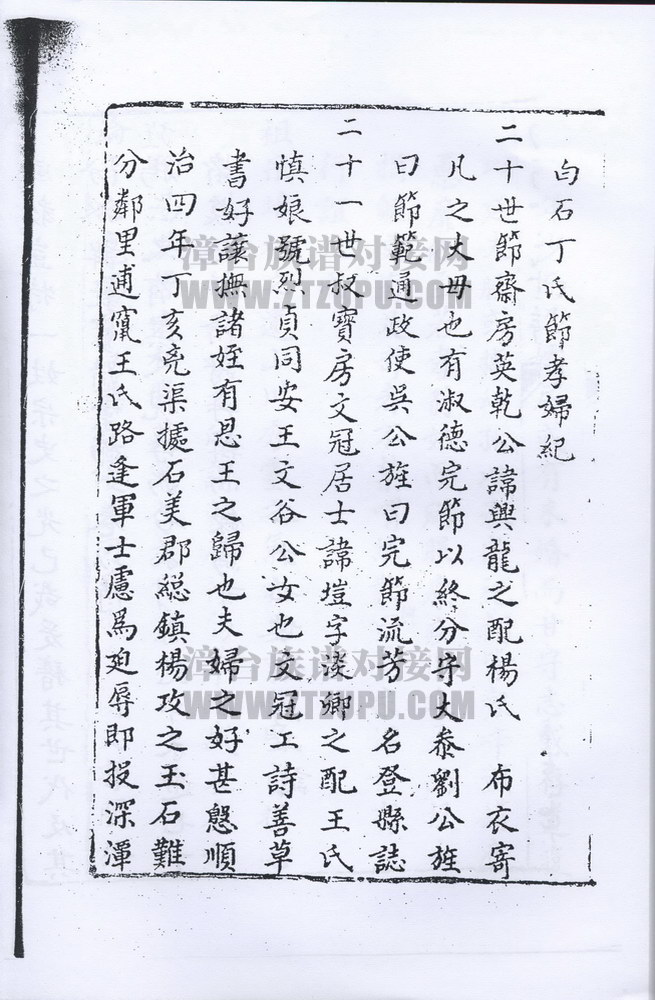 白石丁氏節孝婦紀
二十世節齋房英乾公諱興龍之配楊氏 布衣寄
凡之大母也有淑德完節以終分守大泰劉公旌
曰節範通政使吳公旌曰完節流芳 名登縣誌
二十一世叔寶房文冠居士諱塏字淡卿之配王氏
慎娘號烈貞同安王文谷公女也文冠工詩善草
書好讓撫諸姪有恩王之歸也夫婦之好甚慇順
治四年丁亥亮渠據石美郡總鎮楊攻之玉石難
分鄰里逋竄王氏路逢軍士慮為廹辱即投深潭
漳台族谱对接网
WWW.ZTZUPU.COM
漳台族谱对接网
WWW.ZTZUPU.COM